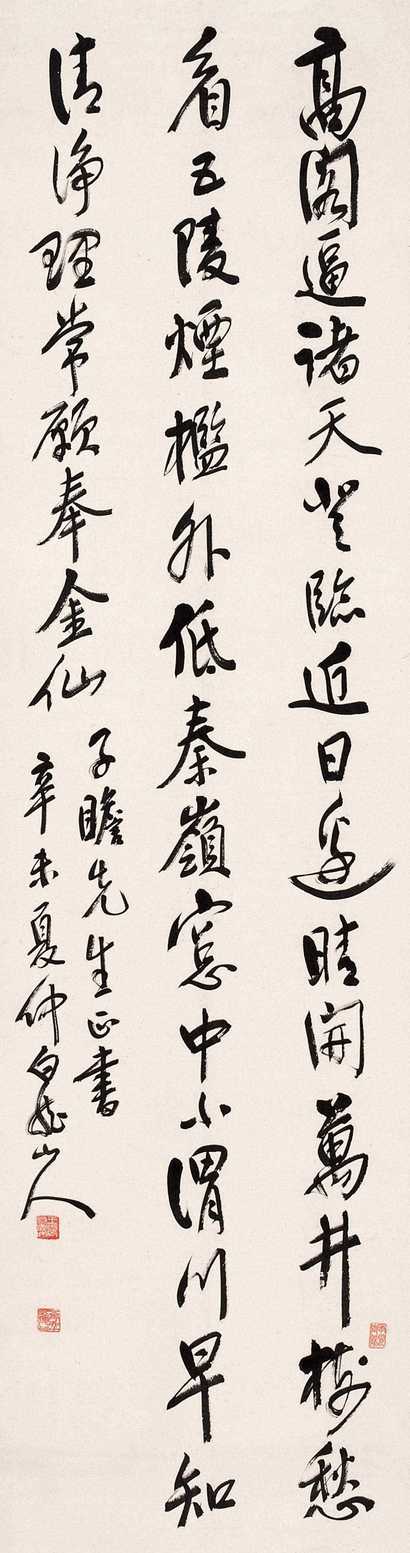 高閣逼諸天登臨近日邊晴開萬井樹愁
看五陵煙檻外低秦嶺窓中小渭川早知
清淨理常願奉金仙
子瞻先生正書
辛未夏仲白龍山人